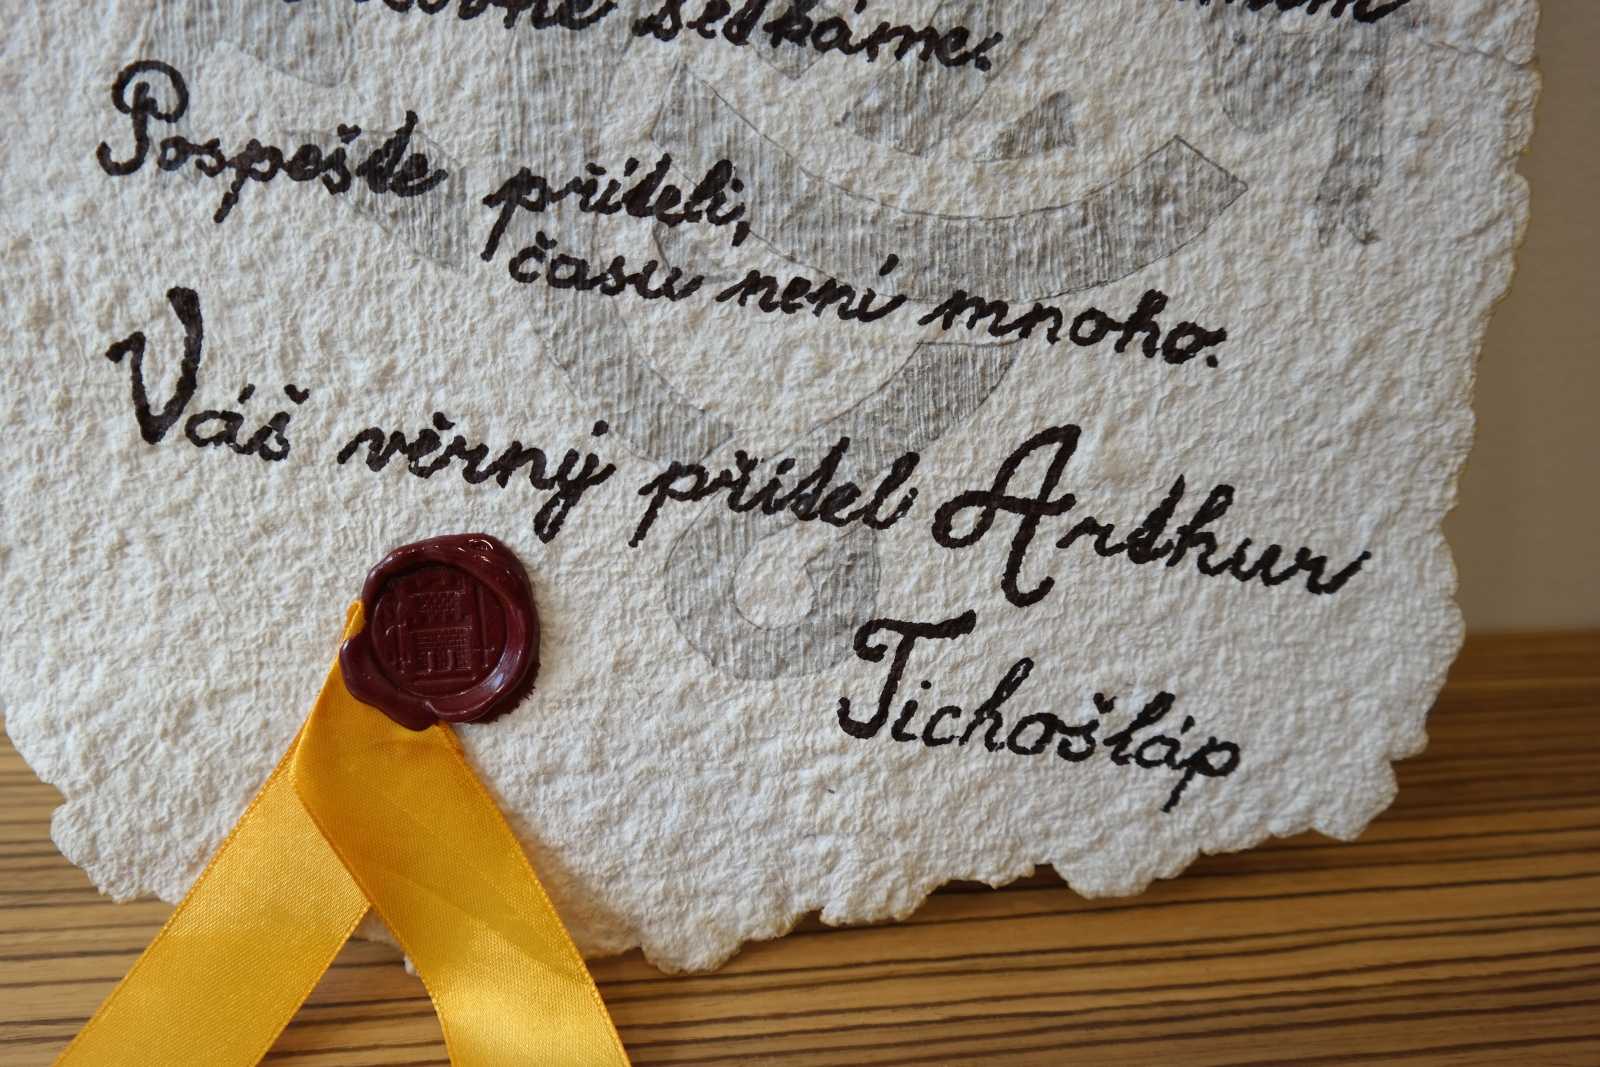 setkáme.
Pospěšte přátelé,
času není mnoho.
Váš věrný přítel Arthur
Tichošláp